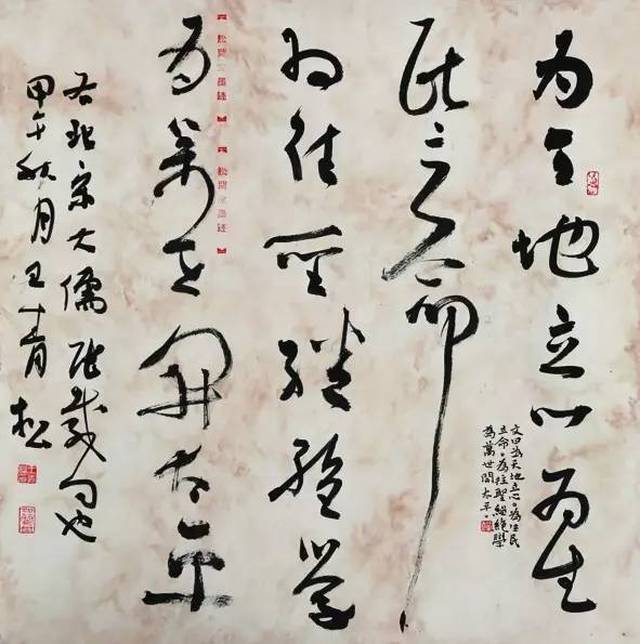 为天地立心为生
民立命
为往聖繼絕学
为萬世開太平
右北宋大儒张载句也
甲午秋月王青松
文曰為天地立心。為生民
立命。為往聖繼絕學
為萬世開太平。